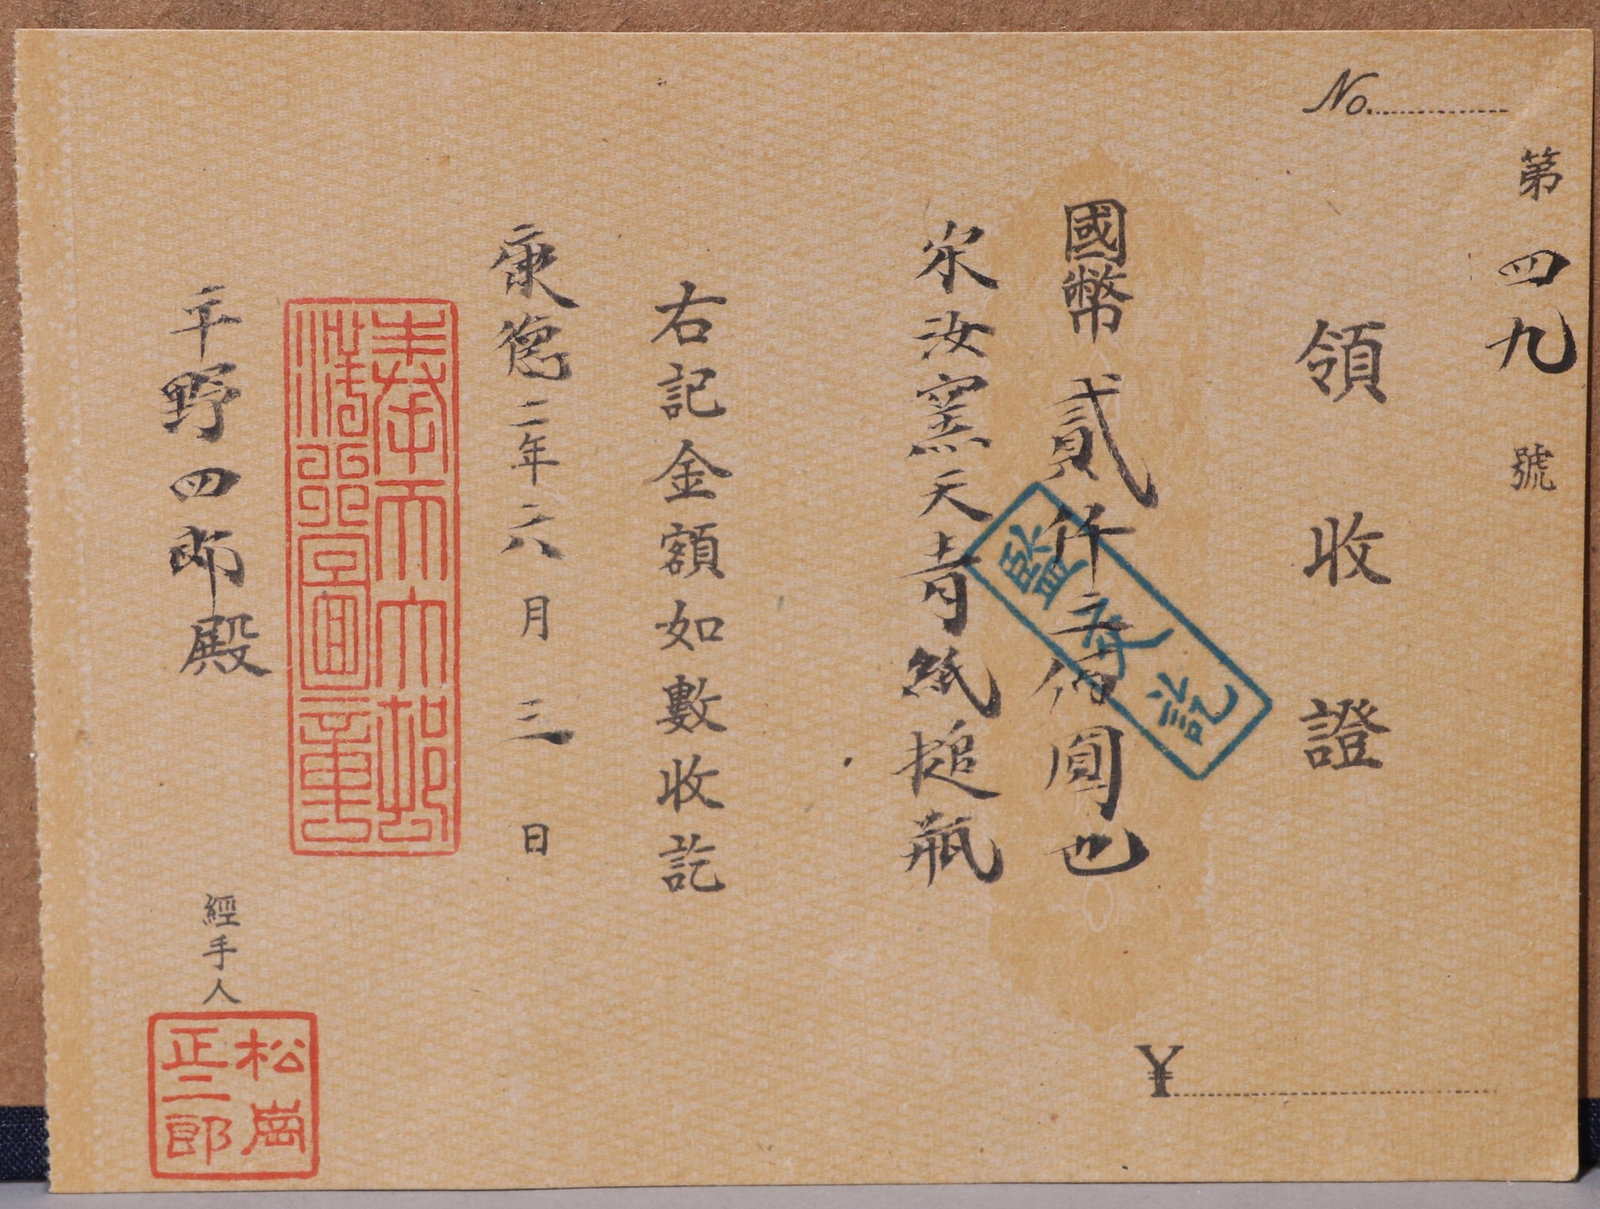 No.
第四九號
領收證
國幣貳仟五佰圓也
訖
¥
宋汝窯天青紙搥瓶
右記金額如數收訖
康德二年六月三日
平野四郎殿
經手人
松崗
正二郎